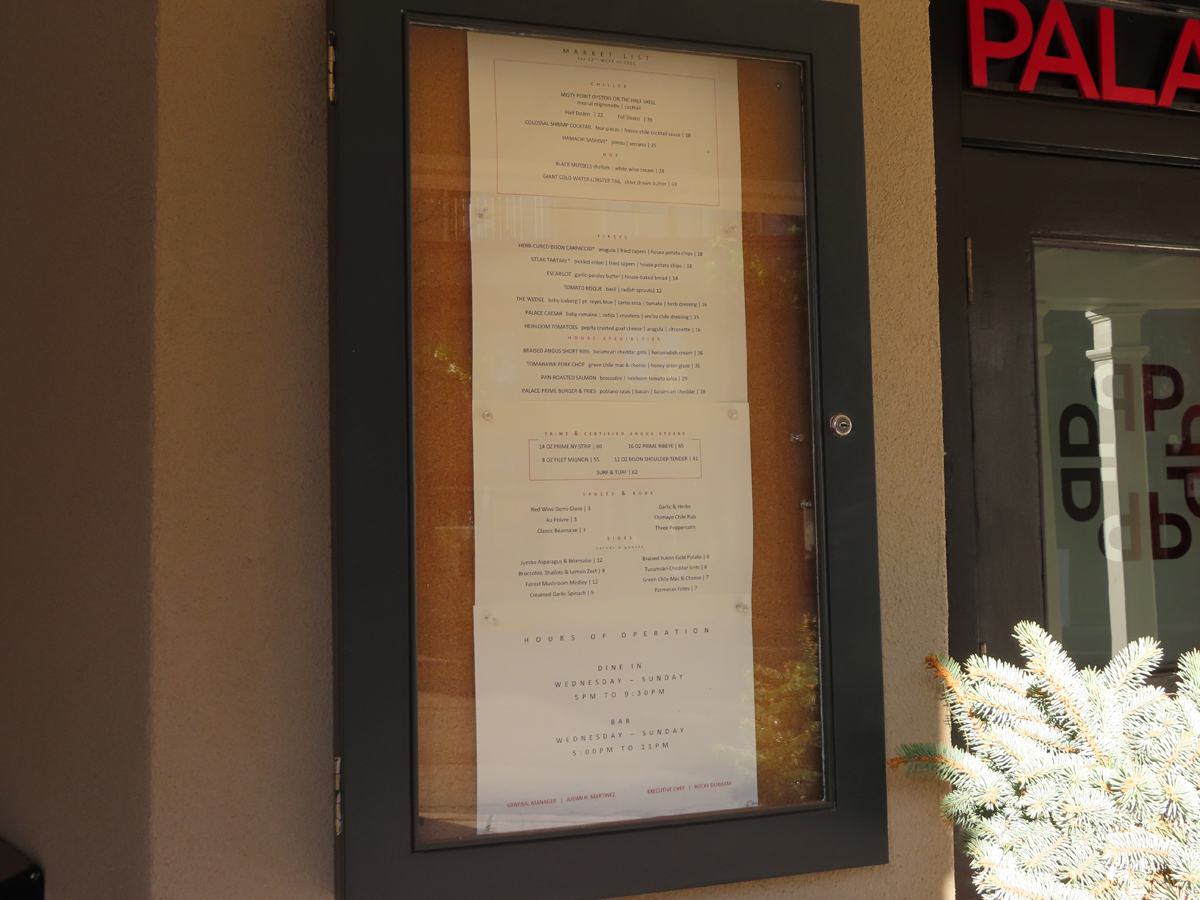 MARKET LIST
CHILLED
MISTY POINT OYSTERS ON THE HALF SHELL
mezcal mignonette | cocktail
Half Dozen | 22 Full Dozen | 36
COLOSSAL SHRIMP COCKTAIL four pieces | fresno chile cocktail sauce | 18
HAMACHI SASHIMI* ponzu | serrano | 15
HOT
BLACK MUSSELS shallots | white wine cream |
GIANT COLD WATER LOBSTER TAIL clove drawn butter |
FIRSTS
HERB-CURED BISON CARPACCIO* arugula | fried capers | house potato chips | 18
STEAK TARTARE* pickled onion | fried capers | house potato chips | 18
ESCARGOT garlic-parsley butter | house-baked bread | 14
TOMATO BISQUE basil | radish sprouts| 12
THE WEDGE baby iceberg | pt. reyes blue | carne seca | tomato | herb dressing | 16
PALACE CAESAR baby romaine | cotija | croutons | ancho chile dressing | 15
HEIRLOOM TOMATOES pepita crusted goat cheese | arugula | citronette | 16
HOUSE SPECIALTIES
BRAISED ANGUS SHORT RIBS tucumcari cheddar grits | horseradish cream | 36
TOMAHAWK PORK CHOP green chile mac & cheese | honey-cider glaze | 35
PAN-ROASTED SALMON broccolini | heirloom tomato salsa | 29
PALACE PRIME BURGER & FRIES poblano rajas | bacon | tucumcari cheddar | 18
PRIME & CERTIFIED ANGUS STEAKS
14 OZ PRIME NY STRIP | 60 16 OZ PRIME RIBEYE | 65
8 OZ FILET MIGNON | 55 12 OZ BISON SHOULDER TENDER | 41
SURF & TURF | 62
SAUCES & RUBS
Red Wine Demi-Glace | 3 Garlic & Herbs
Au Poivre | 3 Chimayo Chile Rub
Classic Béarnaise | 3 Three Peppercorn
SIDES
serves 2 guests
Jumbo Asparagus & Béarnaise | 12 Braised Yukon Gold Potato | 8
Broccolini, Shallots & Lemon Zest | 9 Tucumcari Cheddar Grits | 8
Forest Mushroom Medley | 12 Green Chile Mac & Cheese | 7
Creamed Garlic Spinach | 9 Parmesan Frites | 7
HOURS OF OPERATION
DINE IN
WEDNESDAY – SUNDAY
5PM TO 9:30PM
BAR
WEDNESDAY – SUNDAY
5:00PM TO 11PM
GENERAL MANAGER | JULIAN H. MARTINEZ EXECUTIVE CHEF | ROCKY DURHAM
PALA